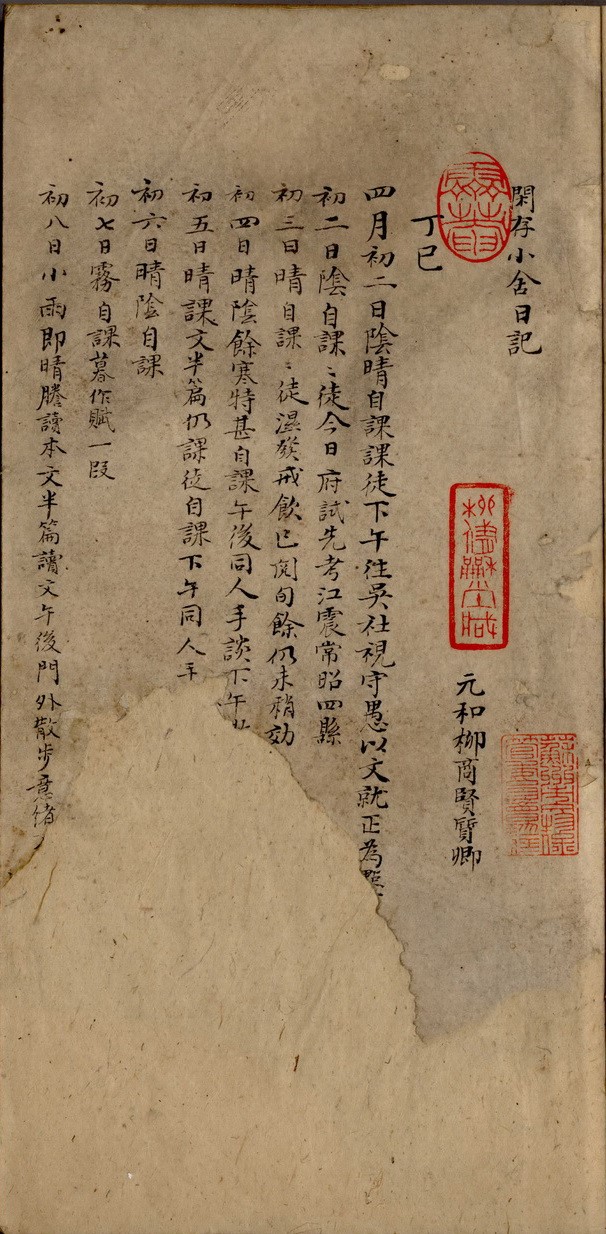 閑存小舍日記
元和柳商賢質卿
丁巳
四月初二日陰晴自課課徒下午往吳社視守愚以文就正為
初二日陰自課〻徒今日府試先考江震常昭四縣
初三日晴自課〻徒濕癸戒飲已閱旬餘仍未稍効
初四日晴陰餘寒特甚自課午後同人手談下午
初五日晴課文半篇仍課徒自課下午同人手
初六日晴陰自課
初七日霧自課暮作賦一段
初八日小雨即晴謄讀本文半篇讀文午後門外散步意緒